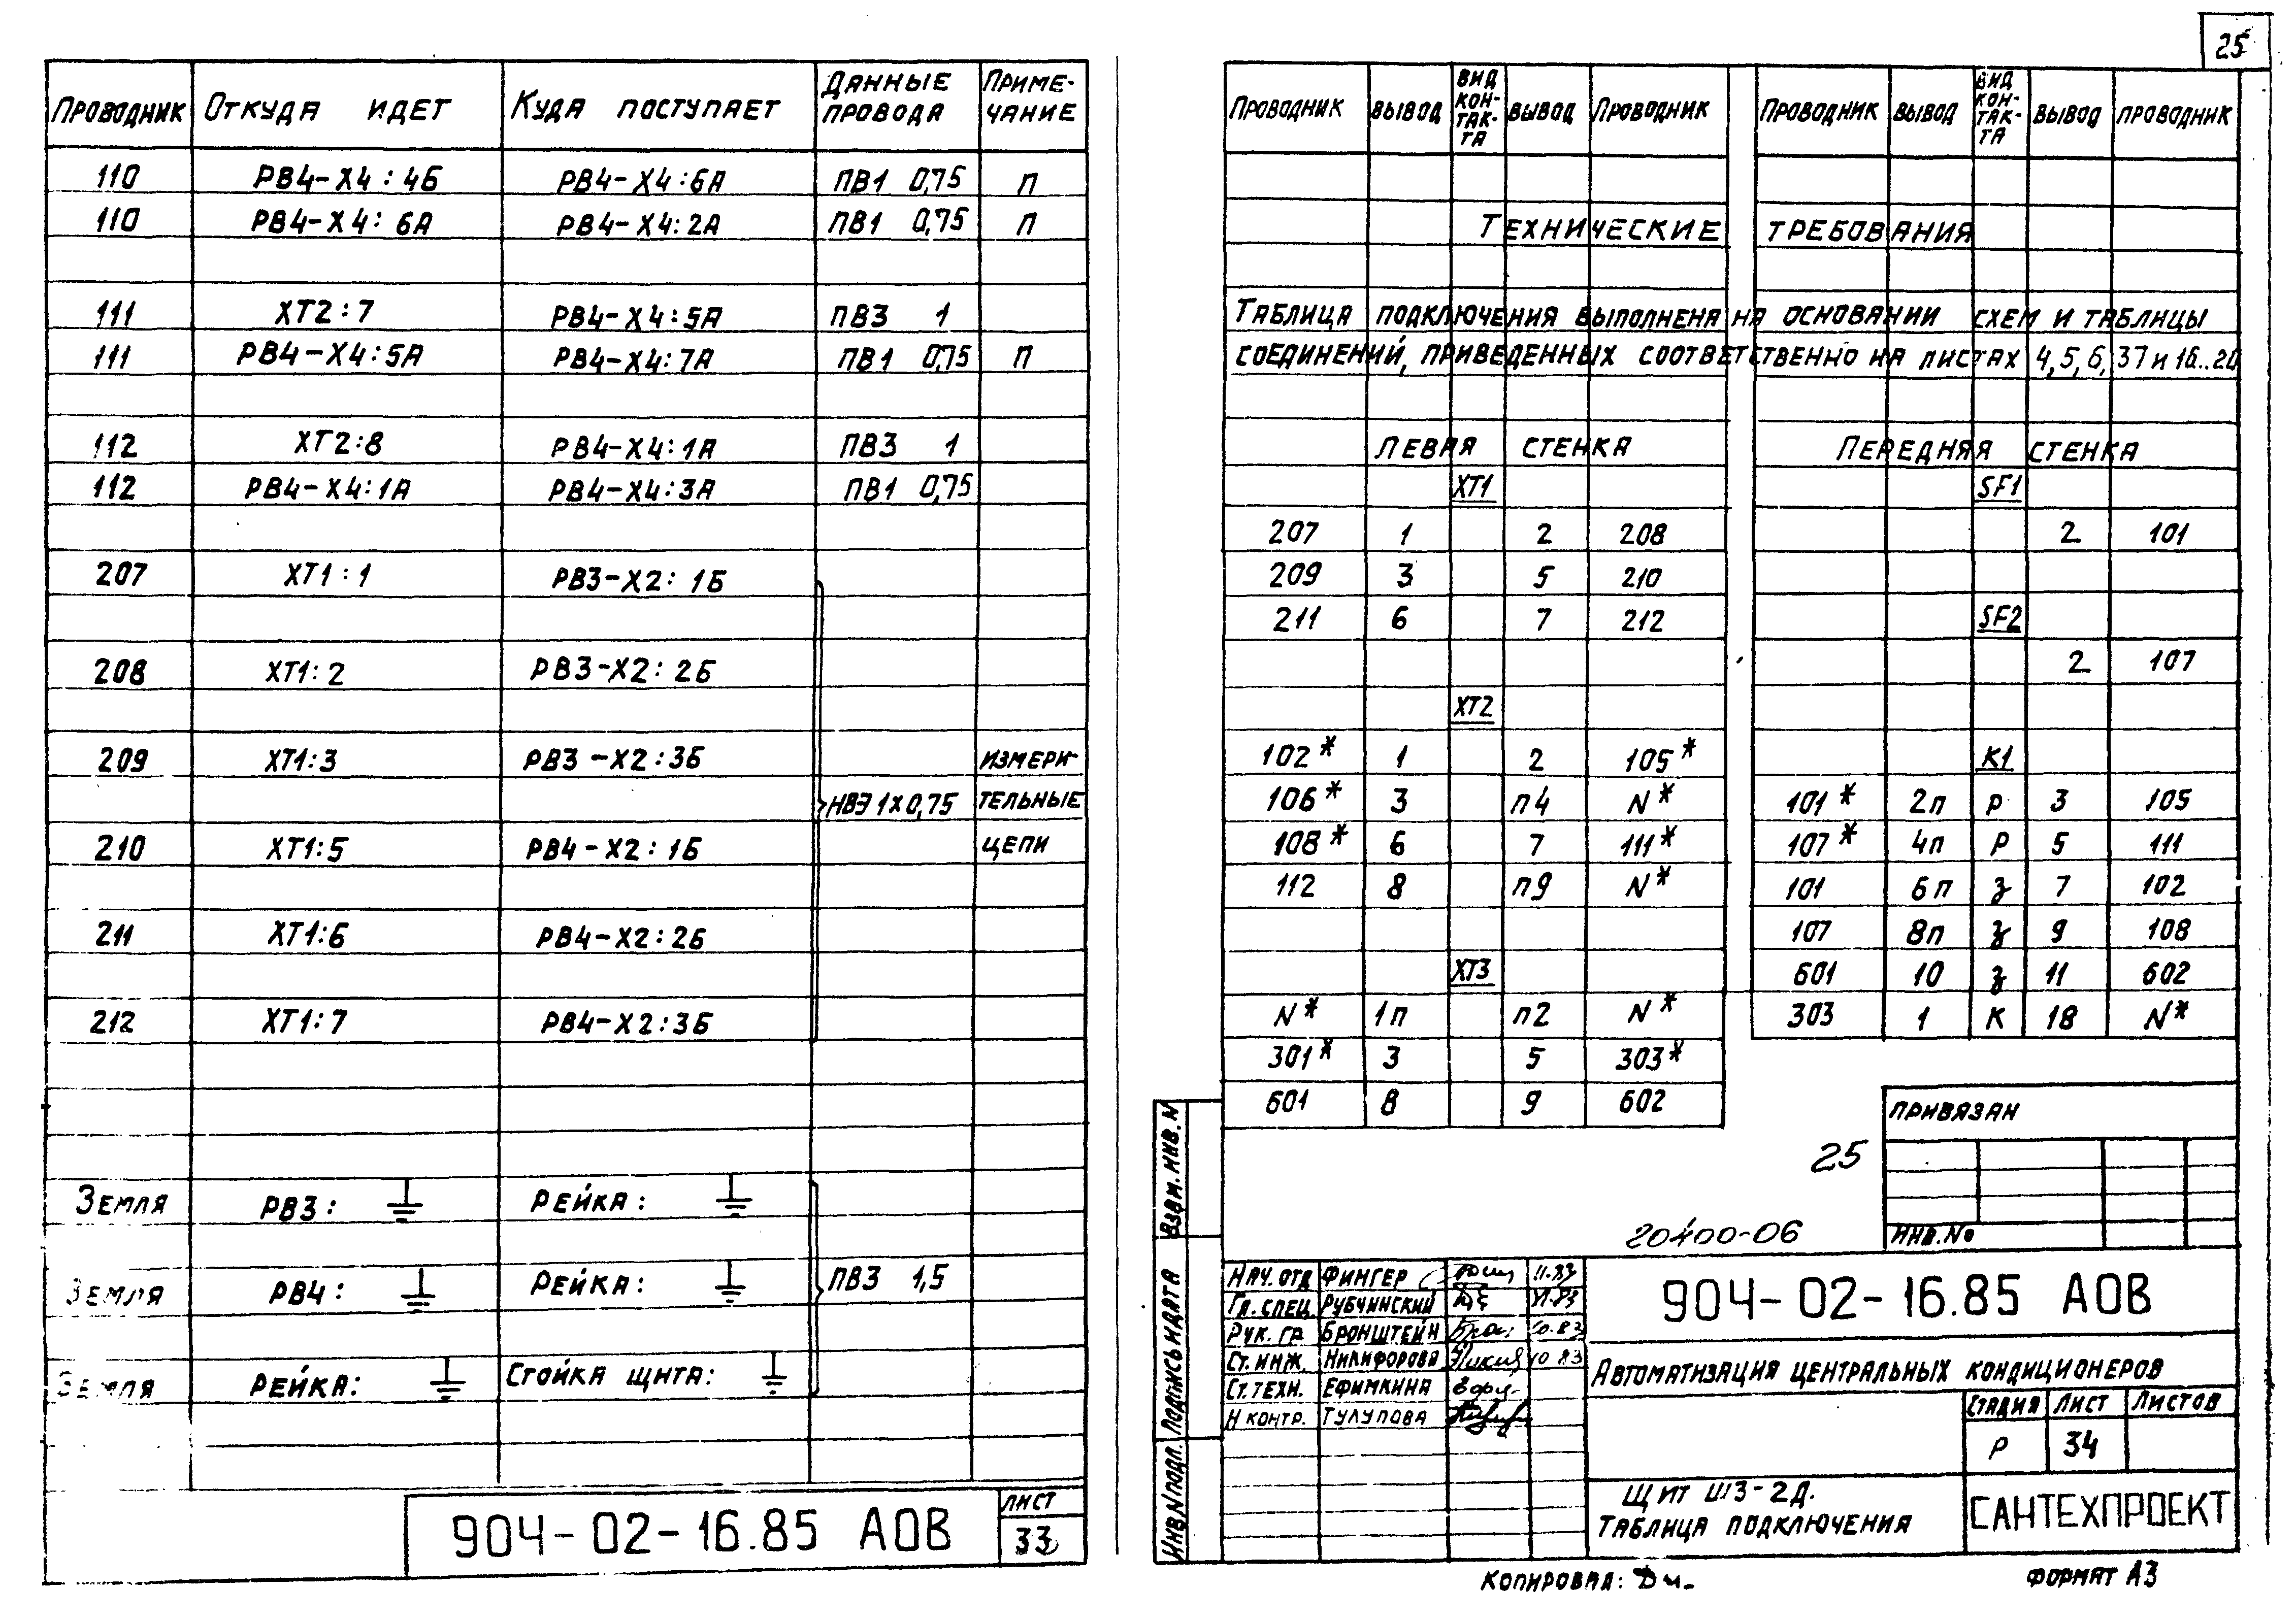 Проводник Откуда идет Куда поступает Данные провода Приме-чание
110 РВ4-Х4:4Б РВ4-Х4:6А ПВ1 0,75 П
110 РВ4-Х4:6А РВ4-Х4:2А ПВ1 0,75 П
111 ХТ2:7 РВ4-Х4:5А ПВ3 1
111 РВ4-Х4:5А РВ4-Х4:7А ПВ1 0,75 П
112 ХТ2:8 РВ4-Х4:1А ПВ3 1
112 РВ4-Х4:1А РВ4-Х4:3А ПВ1 0,75
207 ХТ1:1 РВ3-Х2:1Б
208 ХТ1:2 РВ3-Х2:2Б
209 ХТ1:3 РВ3-Х2:3Б измери-
НВЭ 1х0,75 тельные
210 ХТ1:5 РВ4-Х2:1Б цепи
211 ХТ1:6 РВ4-Х2:2Б
212 ХТ1:7 РВ4-Х2:3Б
Земля РВ3: Рейка:
Земля РВ4: Рейка: ПВ3 1,5
Земля Рейка: Стойка щита:
904-02-16.85 АОВ
Лист
33
25
Проводник Вывод Вид кон-так-та Вывод Проводник Проводник Вывод Вид кон-так-та Вывод Проводник
Технические требования
Таблица подключения выполнена на основании схем и таблицы
соединений, приведенных соответственно на листах 4,5,6,37 и 16..20
Левая стенка
ХТ1
207 1 2 208
209 3 5 210
211 6 7 212
ХТ2
102* 1 2 105*
106* 3 п4 N*
108* 6 7 111*
112 8 п9 N*
ХТ3
N* 1п п2 N*
301* 3 5 303*
601 8 9 602
Передняя стенка
SF1
2 101
SF2
2 107
К1
101* 2п р 3 105
107* 4п р 5 111
101 6п з 7 102
107 8п з 9 108
601 10 з 11 602
303 1 К 18 N*
Привязан
Инв.№
25
20400-06
Взам. инв. N
Подпись и дата
Инв N подл.
Нач. отд Фингер 11.83
Гл. спец. Рубчинский
Рук. гр. Бронштейн 10.83
Ст. инж. Никифорова 10 83
Ст. техн. Ефимкина
Н контр. Тулупова
904-02-16.85 АОВ
Автоматизация центральных кондиционеров
Стадия Лист Листов
Р 34
Щит Ш3-2Д.
Таблица подключения
САНТЕХПРОЕКТ
Копировал:
Формат А3